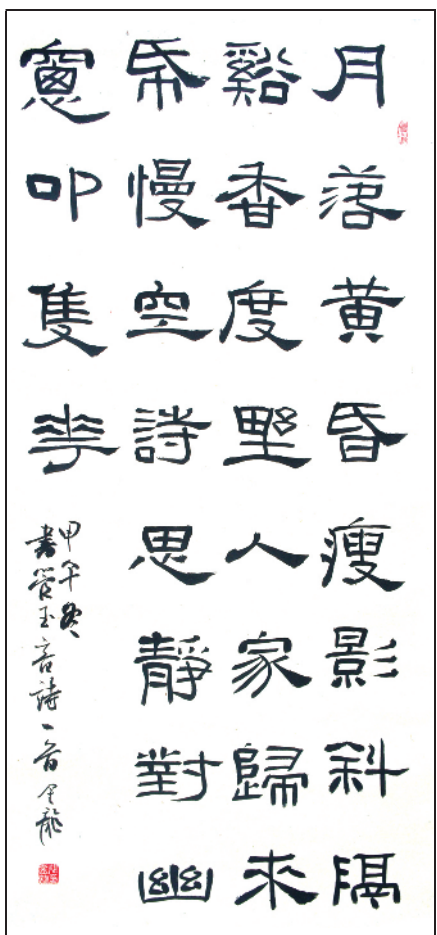 月落黄昏瘦影斜隔
谿香度野人家歸来
帋慢空詩思靜對幽
窻叩隻華
甲午冬
書管玉言詩一首金龍